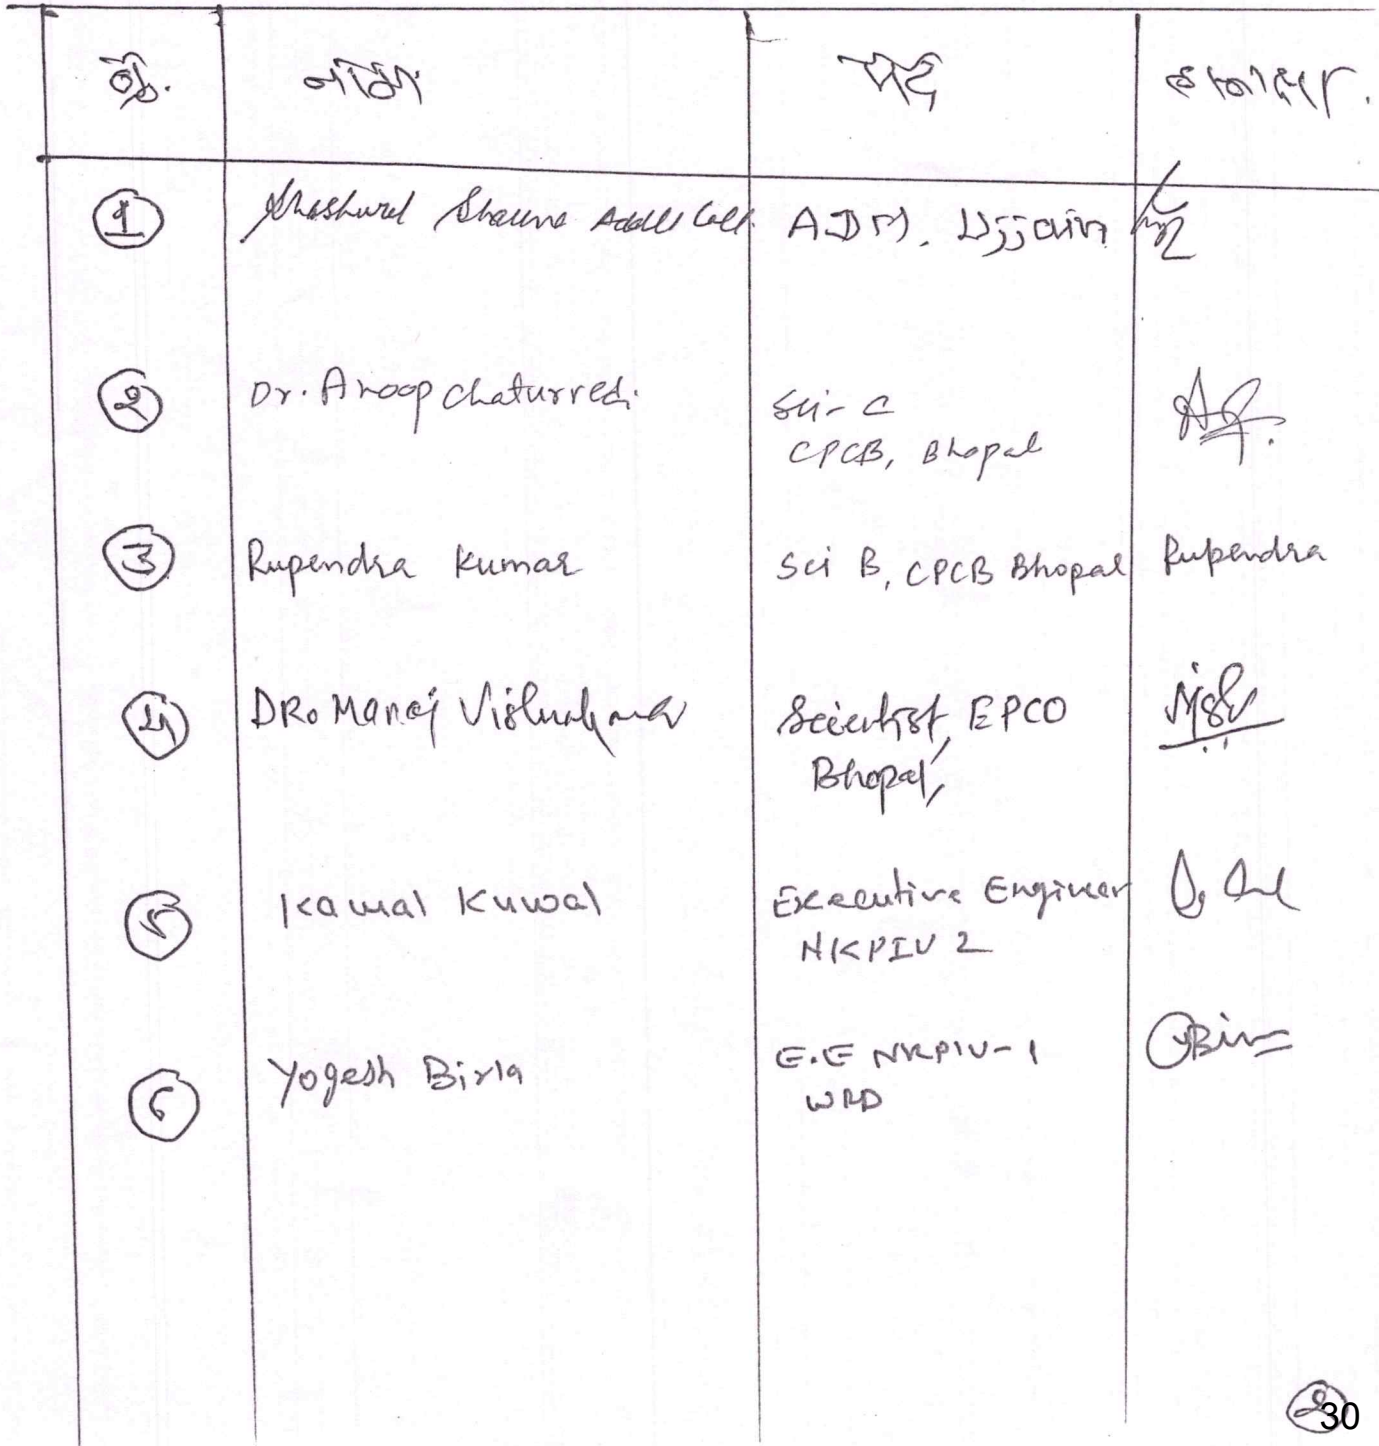 क्र. नाम पद हस्ताक्षर.
1 Shashwat Sharma Addl Coll. ADM, Ujjain
२ Dr. Anoop Chaturvedi Sci-C
CPCB, Bhopal
3 Rupendra Kumar Sci B, CPCB Bhopal Rupendra
4 DR. Manoj Vishwakarma Scientist, EPCO
Bhopal,
5 Kamal Kuwal Executive Engineer
NKPIU 2
6 Yogesh Birla E.E NKPIU-1
WRD
30